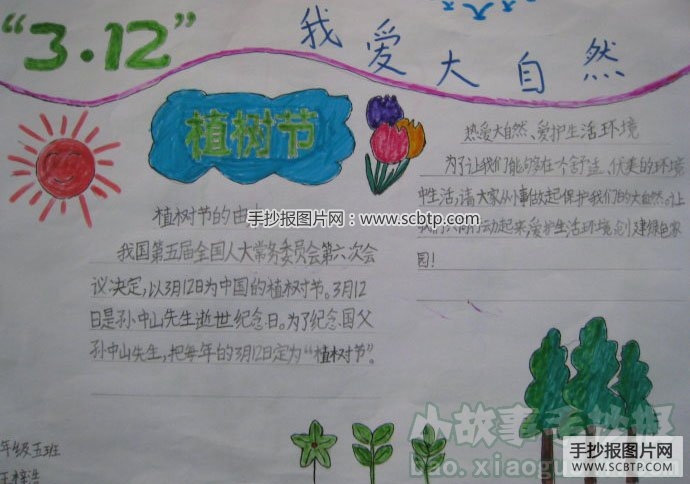 “3·12”
我爱大自然
植树节
植树节的由
我国第五届全国人大常务委员会第六次会
议决定,以3月12为中国的植树节。3月12
日是孙中山先生逝世纪念日。为了纪念国父
孙中山先生,把每年的3月12日定为“植树节”。
热爱大自然、爱护生活环境
为了让我们能够在个舒适、优美的环境
中生活,请大家从小事做起保护我们的大自然。让
我们 行动起来,爱护生活环境,创建绿色家
园!
手抄报图片网:www.scbtp.com
年级五班
王梓浩
小故事手抄报
bao.xiaogu
手抄报图片网
WWW.SCBTP.COM